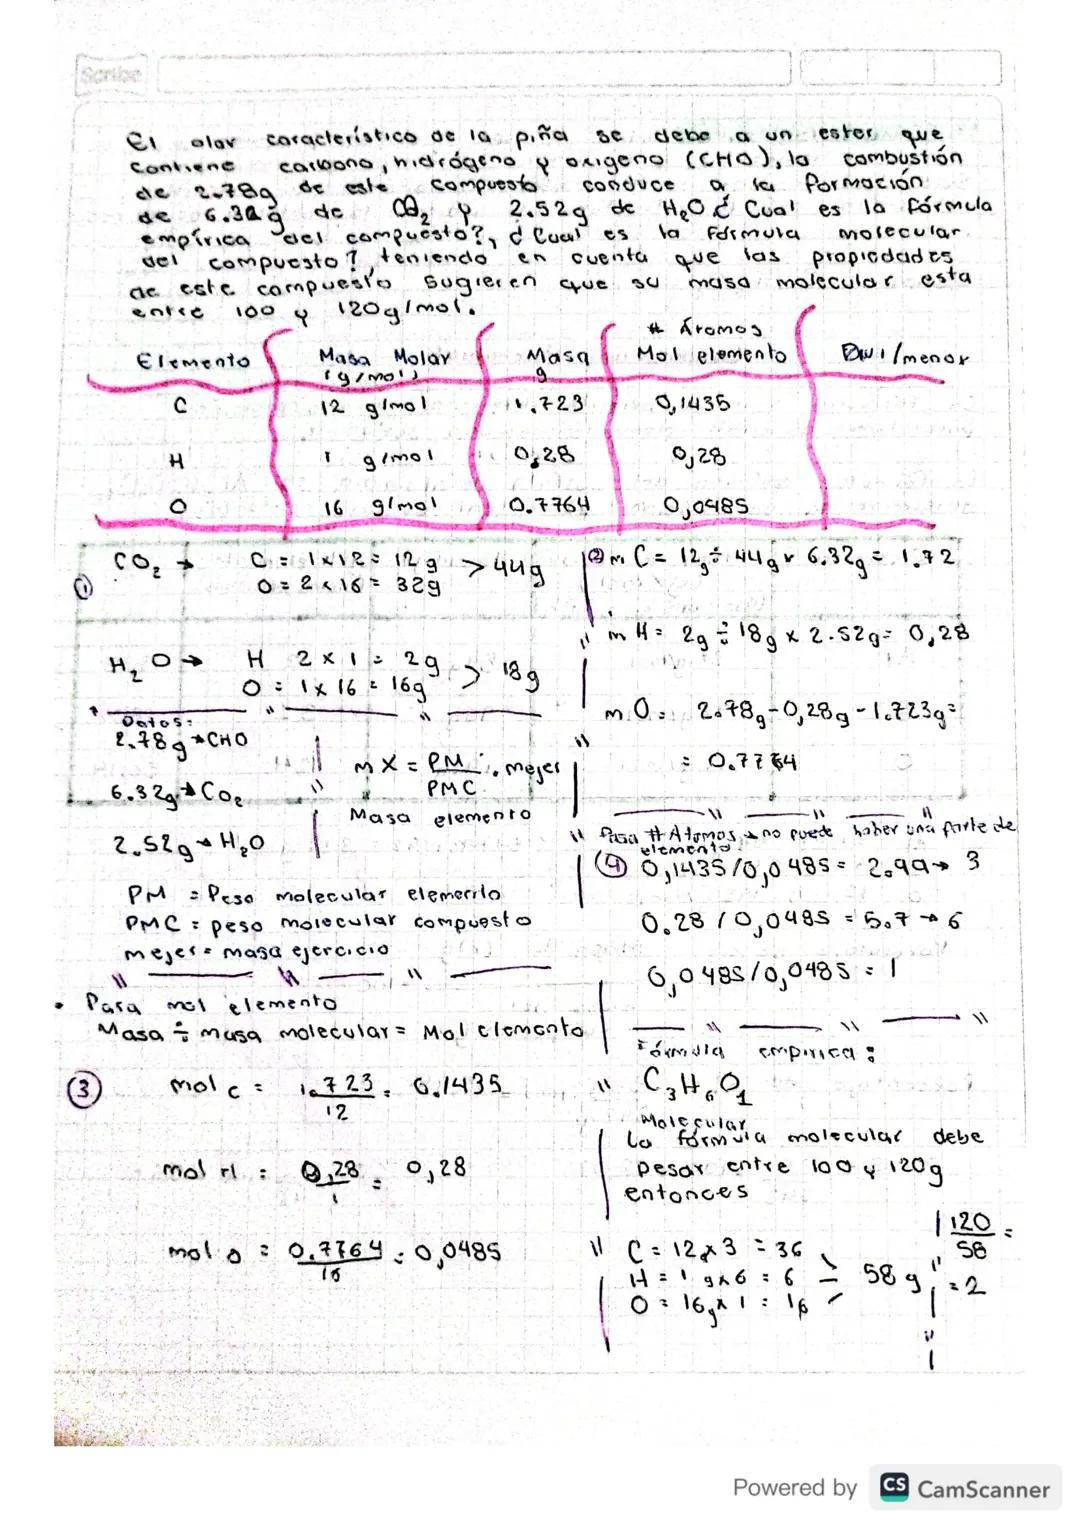 Scribe
El olor característico de la piña se debe a un ester que
contiene carbono, hidrógeno y oxigeno (CHO), la combustión
de 2.78g de este compuesto conduce a la formación
de 6.32g de CO2 y 2.52g de H2O ¿ Cual es la fórmula
empírica del compuesto?, ¿ Cual es la formula molecular
del compuesto?, teniendo en cuenta que las propiedades
de este compuesto sugieren que su masa molecular esta
entre 100 y 120g/mol.
Elemento Masa Molar (g/mol) Masa g # Átomos Mol elemento /menor
C 12 g/mol 1.723 0,1435
H 1 g/mol 0,28 0,28
O 16 g/mol 0.7764 0,0485
① CO2 → C = 1x12 = 12g > 44g
O = 2 x 16 = 32g
H2O → H 2 x 1 = 2g > 18g
O = 1 x 16 = 16g
Datos:
2.78g → CHO
6.32g → CO2
2.52g → H2O
mX = PM / PMC . mejer
Masa elemento
PM = Peso molecular elemento
PMC = peso molecular compuesto
mejer = masa ejercicio
• Para mol elemento
Masa ÷ masa molecular = Mol elemento
③ mol c = 1.723 / 12 = 0.1435
mol H = 0,28 / 1 = 0,28
mol o = 0.7764 / 16 = 0,0485
② m C = 12g ÷ 44g x 6.32g = 1.72
m H = 2g ÷ 18g x 2.52g = 0,28
m O = 2.78g - 0,28g - 1.723g =
= 0.7764
Para # Átomos → no puede haber una parte de
elemento
④ 0,1435/0,0485 = 2.99 → 3
0.28 / 0,0485 = 5.7 → 6
0,0485/0,0485 = 1
Fórmula empirica :
C3H6O1
Molecular
La fórmula molecular debe
pesar entre 100 y 120g
entonces
C = 12 x 3 = 36
H = 1 g x 6 = 6 = 58 g
O = 16g x 1 = 16
120 / 58 =
= 2
Powered by CS CamScanner